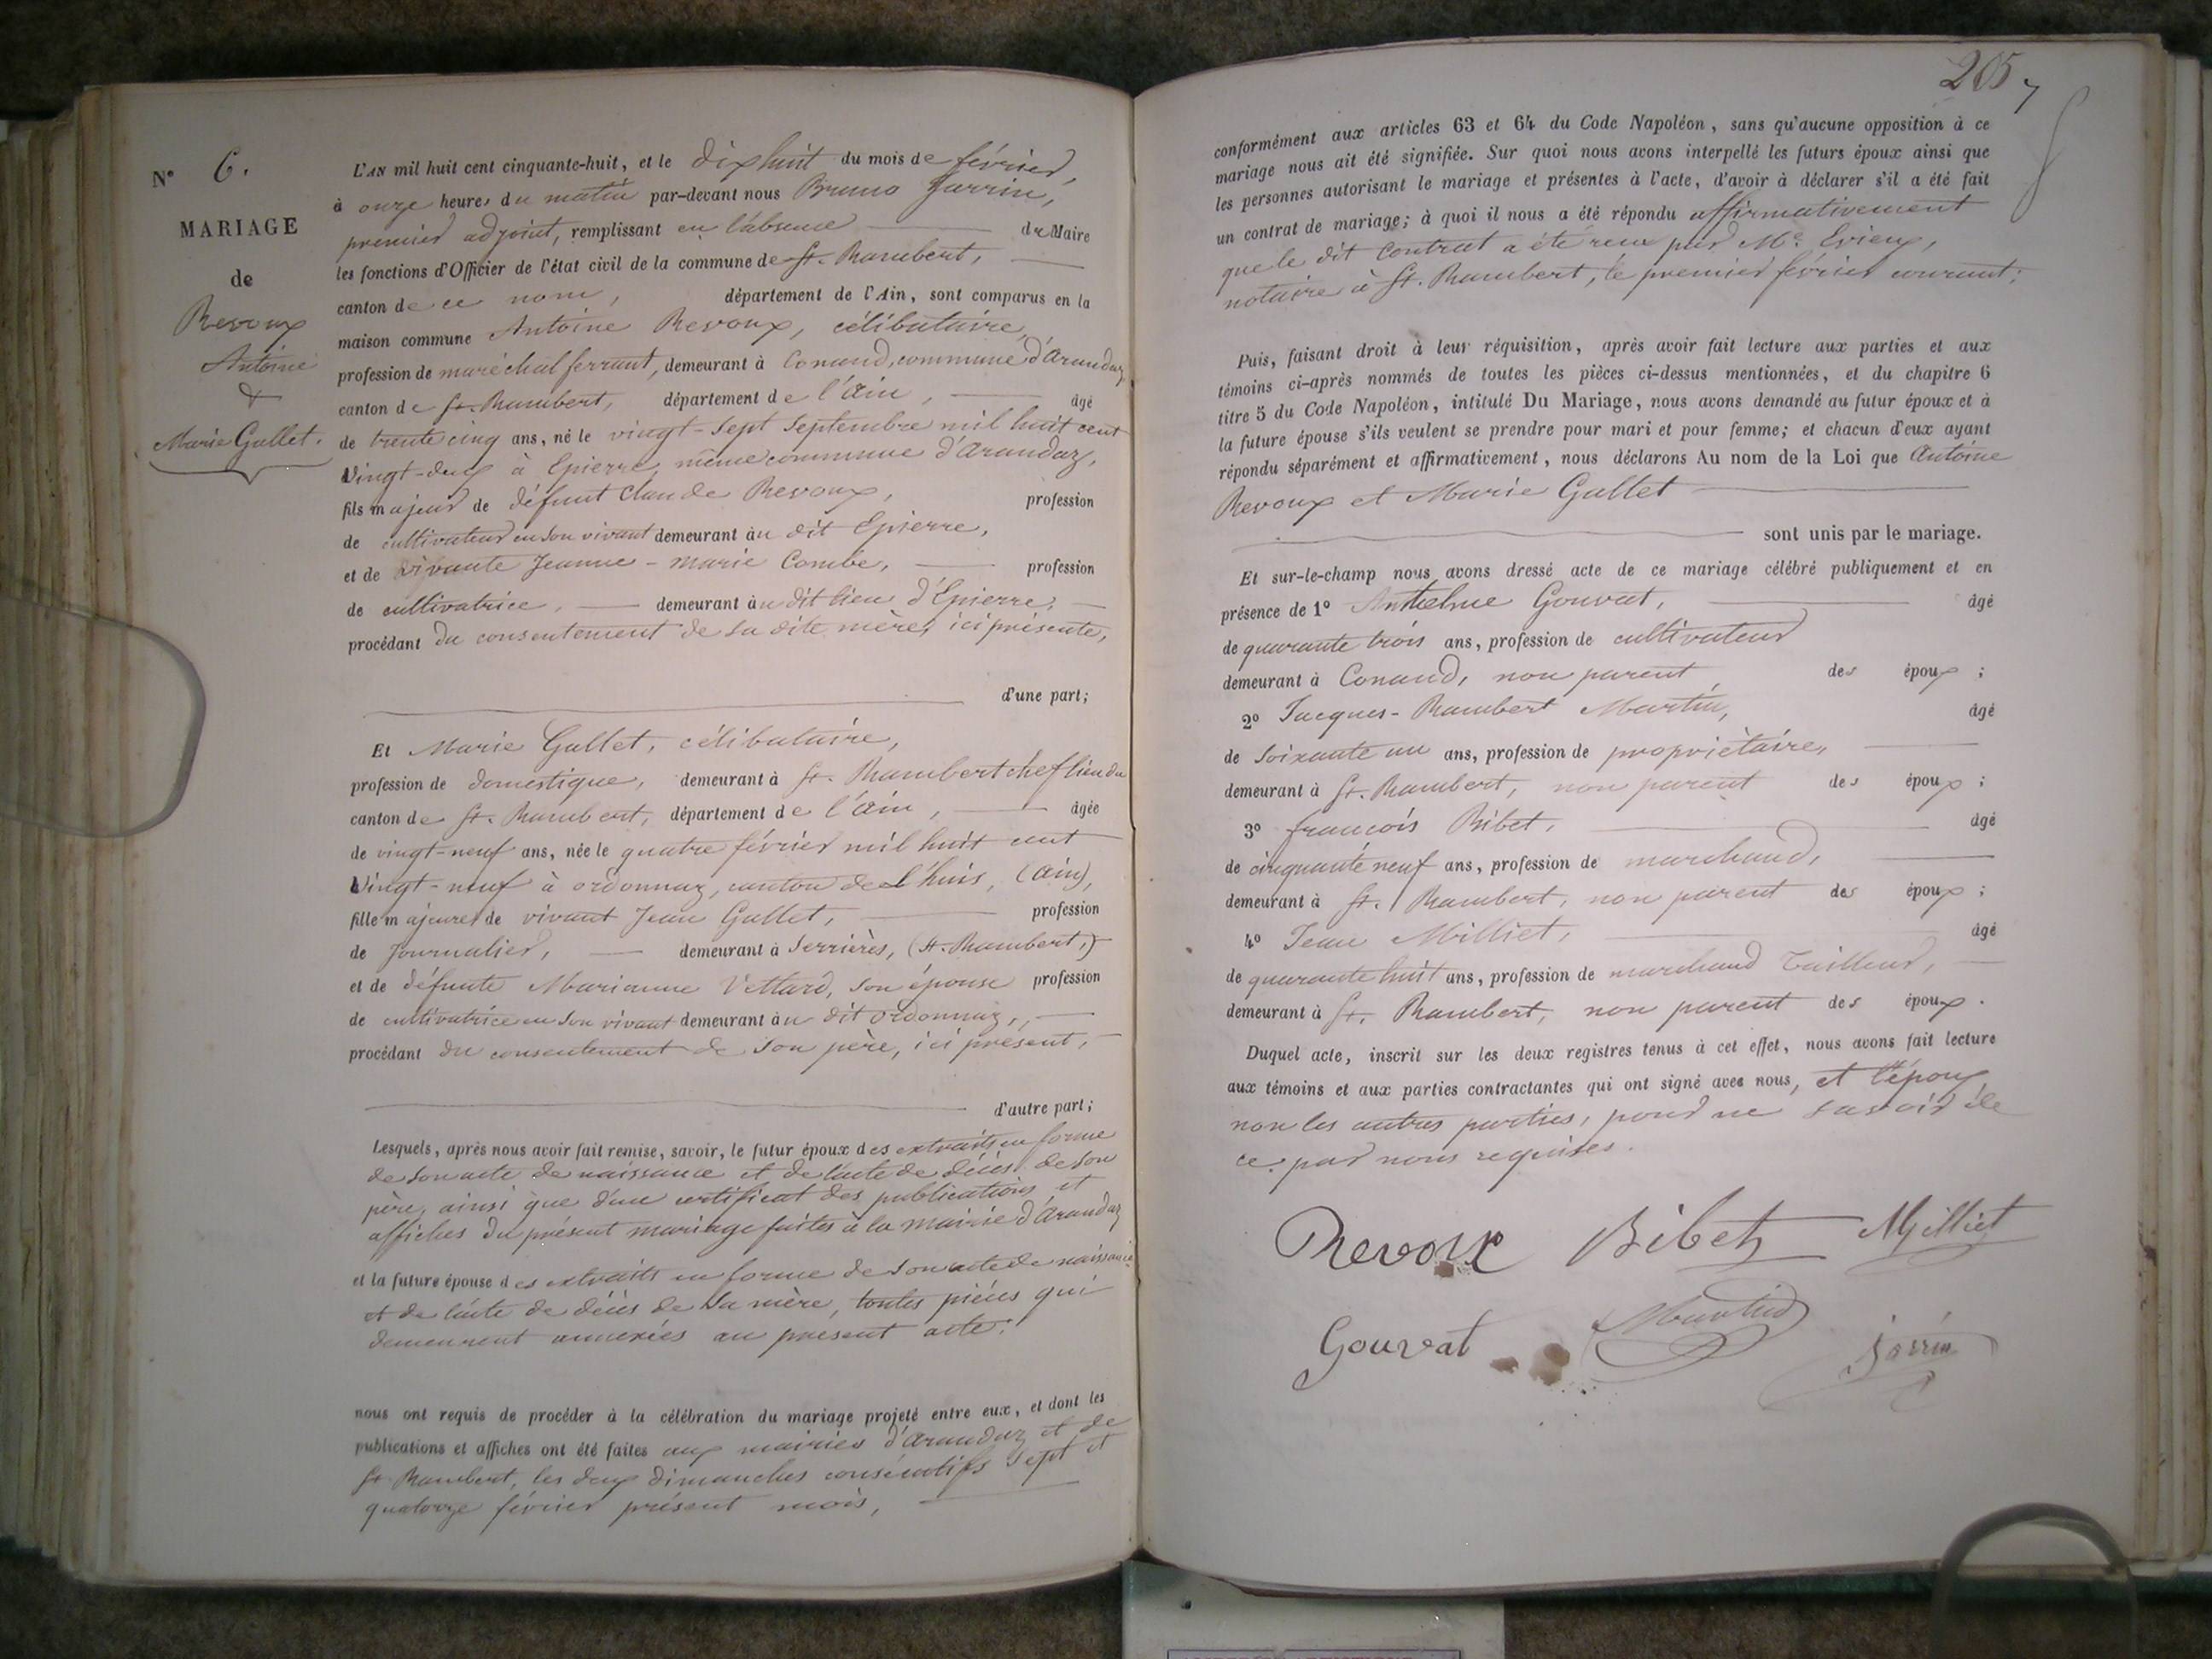 N° 6.
MARIAGE
de
Revoux
Antoine
&
Marie Gallet.
L'AN mil huit cent cinquante-huit, et le dix huit du mois de février,
à onze heures du matin par-devant nous Bruno Jarrin,
premier adjoint, remplissant en l'absence du Maire
les fonctions d'Officier de l'état civil de la commune de St. Rambert,
canton de ce nom, département de l'Ain, sont comparus en la
maison commune Antoine Revoux, célibataire,
profession de maréchal ferrant, demeurant à Conand, commune d'Arandaz
canton de St. Rambert, département de l'Ain, âgé
de trente cinq ans, né le vingt-sept septembre mil huit cent
vingt-deux à Epierre, même commune d'Arandaz,
fils majeur de défunt Claude Revoux, profession
de cultivateur en son vivant demeurant au dit Epierre,
et de vivante Jeanne-Marie Combe, profession
de cultivatrice, demeurant au dit lieu d'Epierre,
procédant du consentement de sa dite mère, ici présente,
d'une part;
Et Marie Gallet, célibataire,
profession de domestique, demeurant à St. Rambert chef lieu du
canton de St. Rambert, département de l'Ain, âgée
de vingt-neuf ans, née le quatre février mil huit cent
vingt-neuf à ordonnaz, canton de L'huis, (Ain),
fille majeure de vivant Jean Gallet, profession
de journalier, demeurant à Serrières, (St. Rambert,)
et de défunte Marianne Vettard, son épouse profession
de cultivatrice en son vivant demeurant au dit ordonnaz,
procédant du consentement de son père, ici présent,
d'autre part;
Lesquels, après nous avoir fait remise, savoir, le futur époux des extraits en forme
de son acte de naissance et de l'acte de décès de son
père, ainsi que d'un certificat des publications et
affiches du présent mariage faites à la mairie d'Arandaz
et la future épouse des extraits en forme de son acte de naissance
et de l'acte de décès de sa mère, toutes pièces qui
demeurent annexées au présent acte.
nous ont requis de procéder à la célébration du mariage projeté entre eux, et dont les
publications et affiches ont été faites aux mairies d'Arandaz et de
St. Rambert, les deux dimanches consécutifs sept et
quatorze février présent mois,
205
conformément aux articles 63 et 64 du Code Napoléon, sans qu'aucune opposition à ce
mariage nous ait été signifiée. Sur quoi nous avons interpellé les futurs époux ainsi que
les personnes autorisant le mariage et présentes à l'acte, d'avoir à déclarer s'il a été fait
un contrat de mariage; à quoi il nous a été répondu affirmativement
que le dit contrat a été reçu par Me. Evieux,
notaire à St. Rambert, le premier février courant;
Puis, faisant droit à leur réquisition, après avoir fait lecture aux parties et aux
témoins ci-après nommés de toutes les pièces ci-dessus mentionnées, et du chapitre 6
titre 5 du Code Napoléon, intitulé Du Mariage, nous avons demandé au futur époux et à
la future épouse s'ils veulent se prendre pour mari et pour femme; et chacun d'eux ayant
répondu séparément et affirmativement, nous déclarons Au nom de la Loi que Antoine
Revoux et Marie Gallet
sont unis par le mariage.
Et sur-le-champ nous avons dressé acte de ce mariage célébré publiquement et en
présence de 1° Anthelme Gouvat, âgé
de quarante trois ans, profession de cultivateur
demeurant à Conand, non parent des époux;
2° Jacques-Rambert Martin, âgé
de soixante un ans, profession de propriètaire,
demeurant à St. Rambert, non parent des époux;
3° françois Bibet, âgé
de cinquante neuf ans, profession de marchand,
demeurant à St. Rambert, non parent des époux;
4° Jean Milliet, âgé
de quarante huit ans, profession de marchand Tailleur,
demeurant à St. Rambert, non parent des époux.
Duquel acte, inscrit sur les deux registres tenus à cet effet, nous avons fait lecture
aux témoins et aux parties contractantes qui ont signé avec nous, et l'époux
non les autres parties, pour ne savoir de
ce par nous requises.
Revoux Bibet Milliet
Gouvat Martin Jarrin